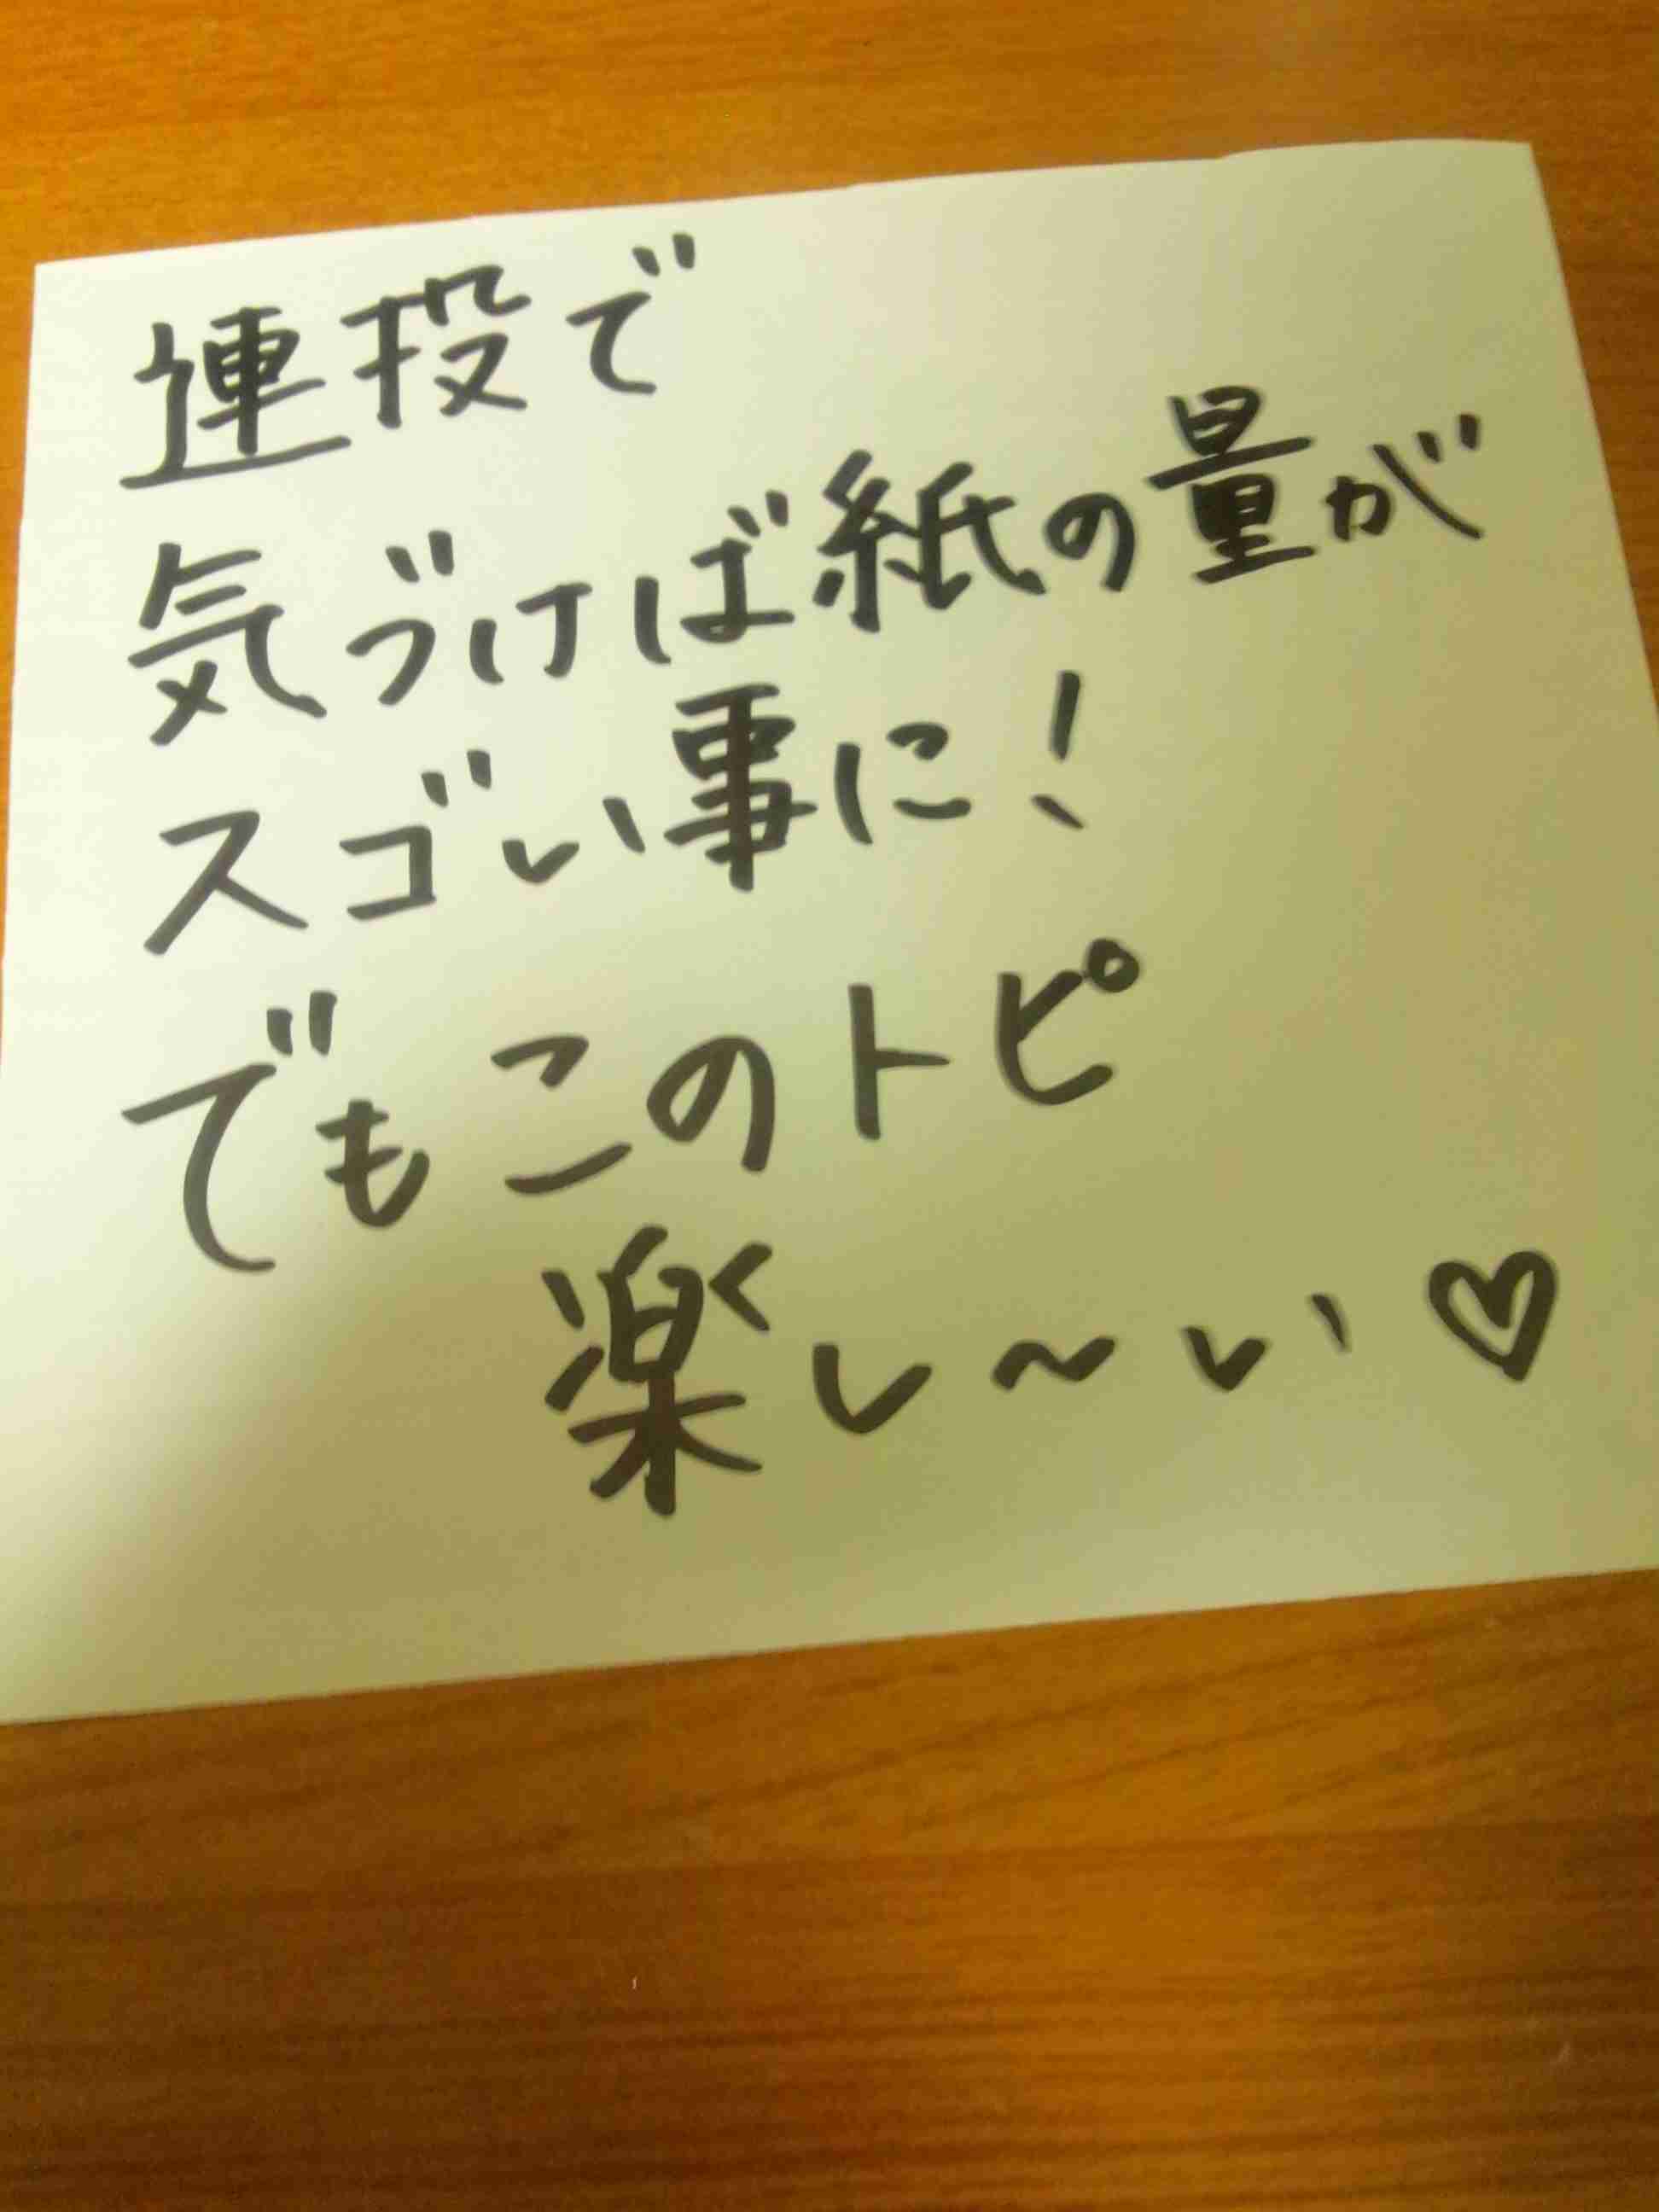 連投で
気づけば紙の量が
スゴい事に!
でもこのトピ
楽し〜い♡